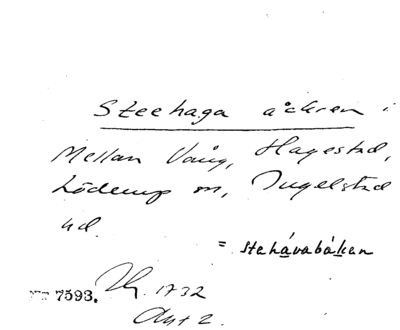 Steehaga åckren i
Mellan Vång, Hagestad,
Löderup sn, Ingelstad
hd.
= stehávabáken
7593. 1732
Akt 2.